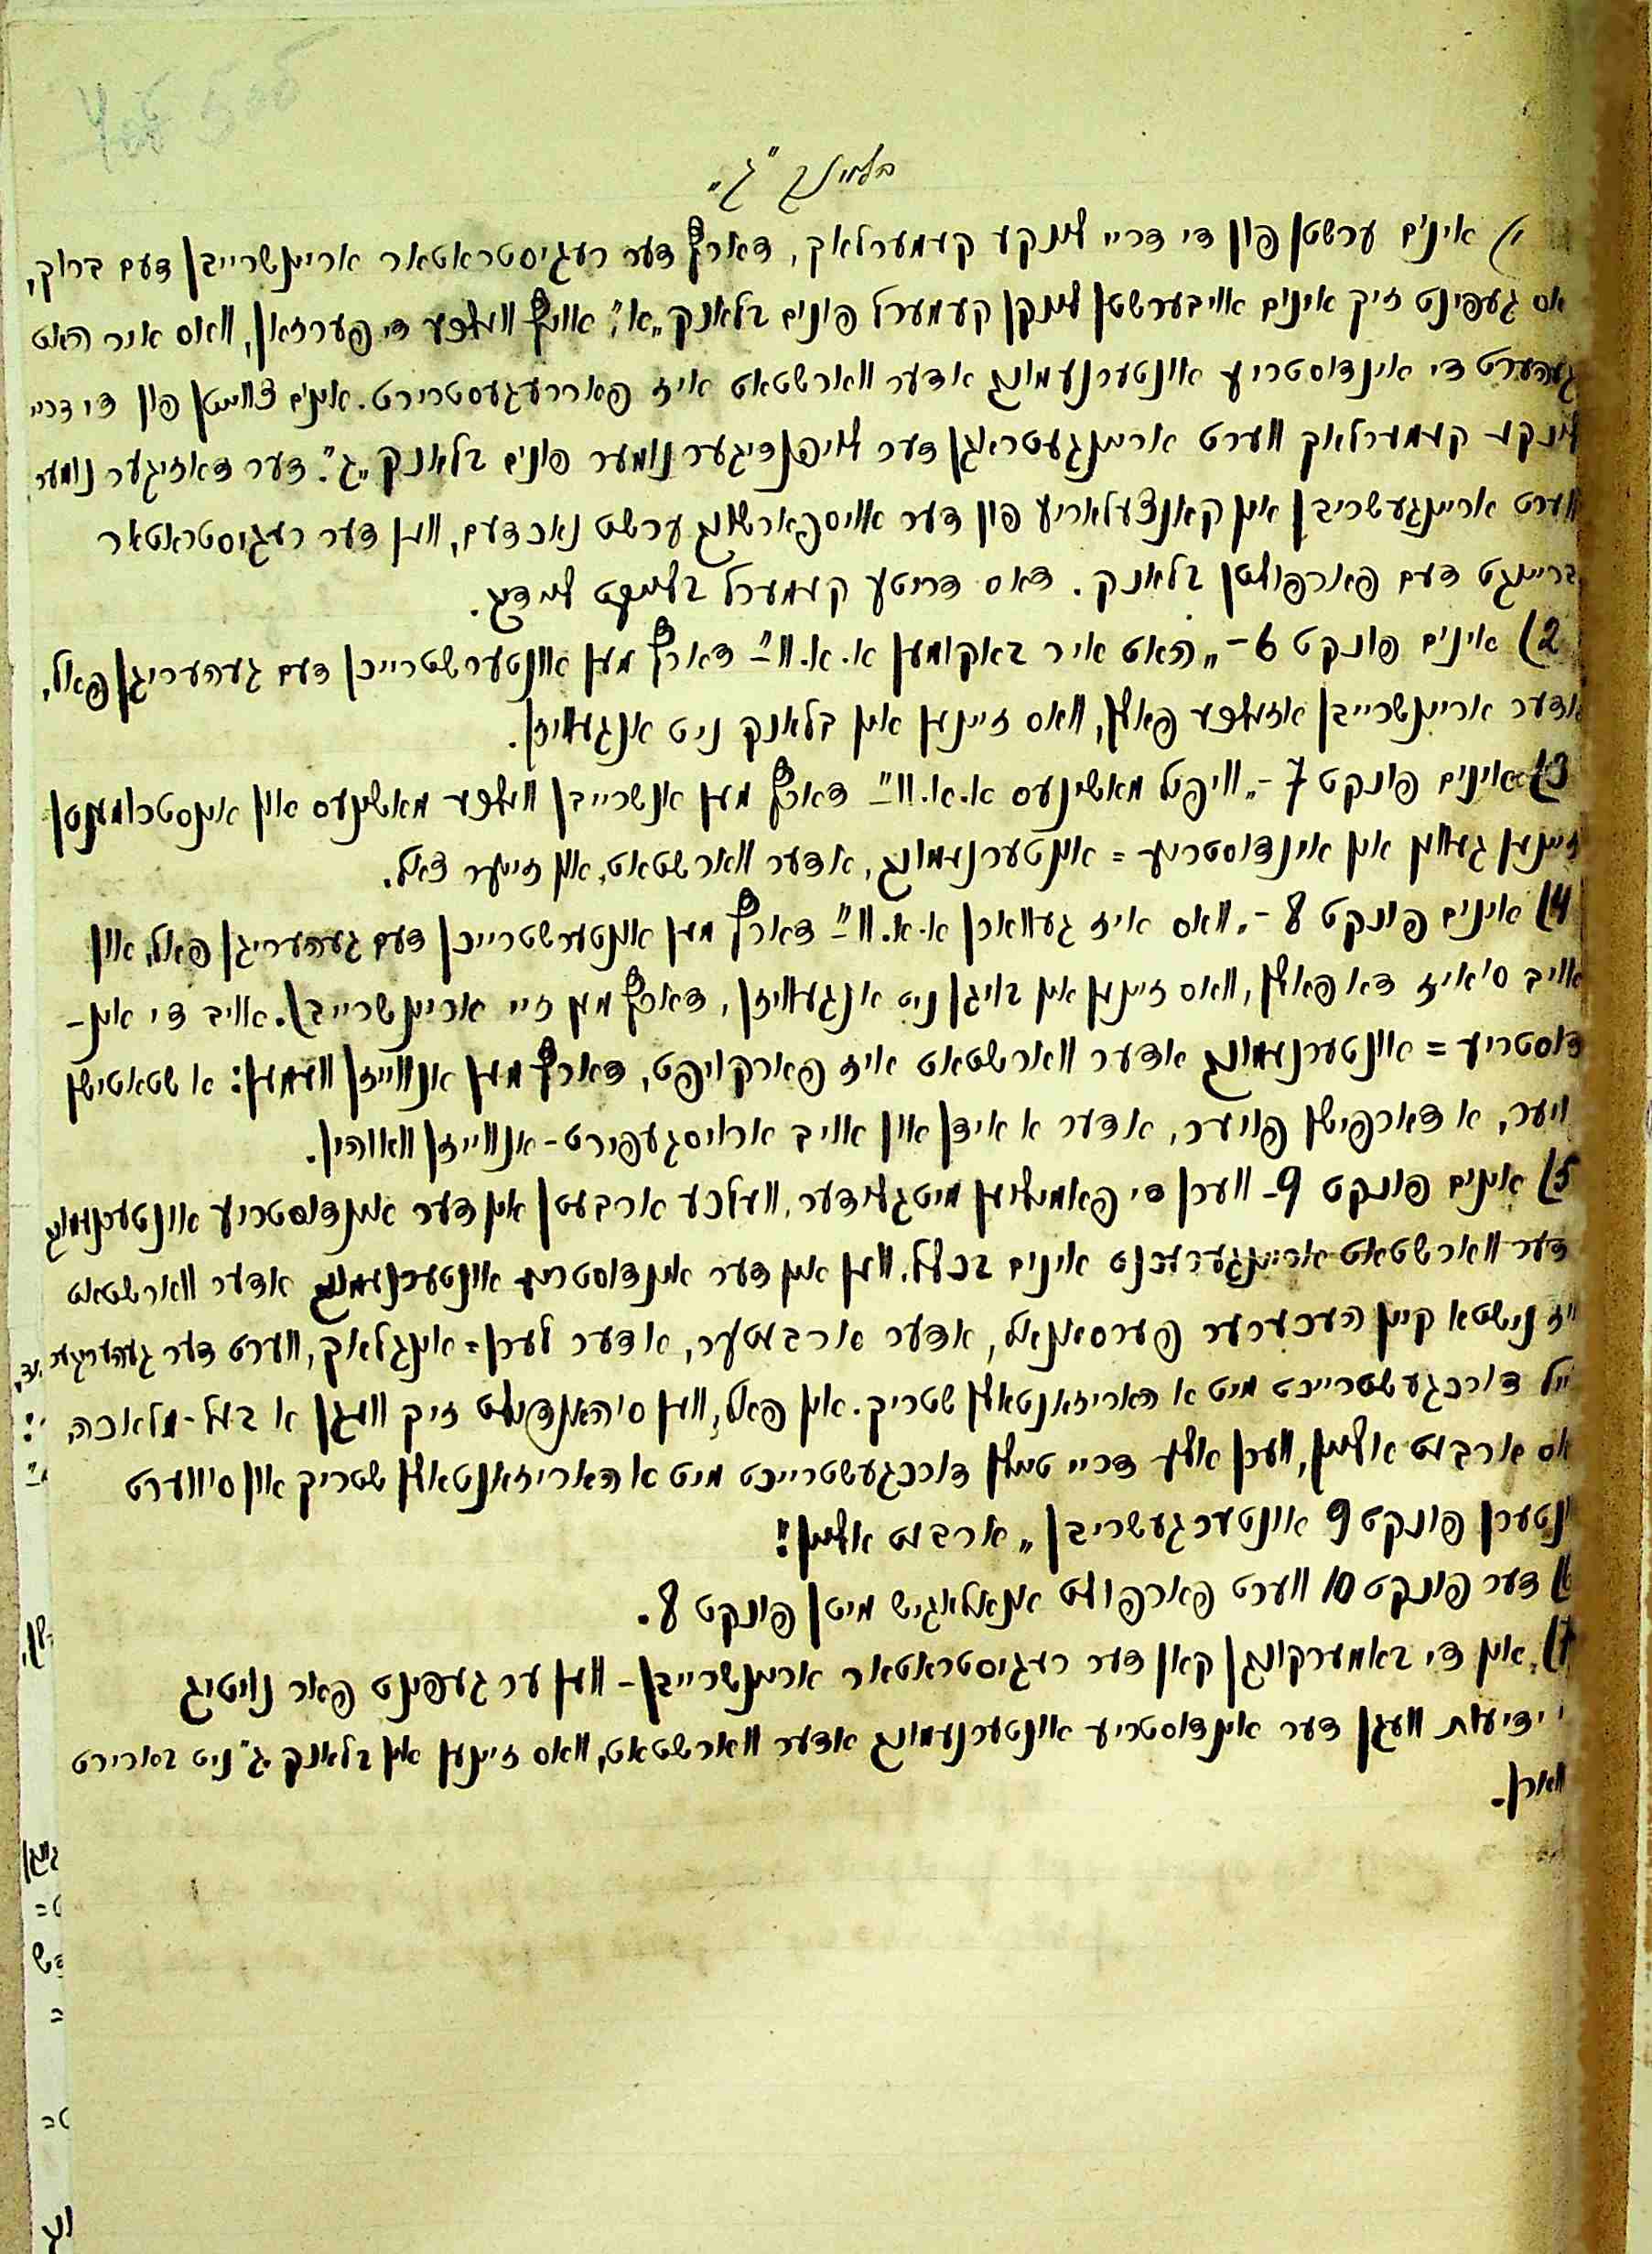 בלאנק "ג"
1) אינים ערשטן פון די דריי לינקע קעמערלאך, דארף דער רעגיסטראטאר אריינשרייבן דעם ברוך,
אס געפינט זיך אינים אויבערשטן לינקן קעמערל פונים בלאנק „א", אויף וועלכע די פערזאן, וואס איר האט
געהערט די אינדוסטריע אונטערנעמונג אדער ווארשטאט איז פאררעגעסטרירט. אינים צווייטן פון די דריי
לינקע קעמערלאך ווערט אריינגעטראגן דער לויפנדיגער נומער פונים בלאנק „ג". דער דאזיגער נומער
ווערט אריינגעשריבן אין קאנצעלאריע פון דער אויספארשונג ערשט נאכדעם, ווען דער רעגיסטראטאר
ברייינגט דעם פארפולטן בלאנק. דאס דריטע קעמערל בלייבט ליידיג.
2) אינים פונקט 6 – „האט איר באקומען א. א. וו" – דארף מען אונטערשטרייכן דעם געהעריגן פאל,
אדער אריינשרייבן אזעלכע פאלן, וואס זיינען אין בלאנק ניט אנגעוויזן.
3) אינים פונקט 7 – „וויפיל מאשינעס א. א. וו" – דארף מען אנשרייבן וועלכע מאשינעס און אינסטרומענטן
זיינען געווען אין אינדוסטריע = אונטערנעמונג, אדער ווארשטאט, און זייער צאל.
4) אינים פונקט 8 – „וואס איז געווארן א. א. וו" – דארף מען אונטערשטרייכן דעם געהעריגן פאל, און
אויב ס'איז דא פאלן, וואס זיינען אין בויגן ניט אנגעוויזן, דארף מען זיי אריינשרייבן. אויב די אינ-
דוסטריע = אונטערנעמונג אדער ווארשטאט איז פארקויפט, דארף מען אנווייזן וועמען: א שטאטישן
ויער, א דארפישן פויער, אדער א אידן און אויב ארויסגעפירט – אנווייזן וואוהין.
5) אינים פונקט 9 – ווערן די פאמיליען מיטגלידער, וועלכע ארבעטן אין דער אינדוסטריע אונטערנעמונג
דער ווארשטאט אריינגערעכנט אינים בכלל. ווען אין דער אינדוסטריע אונטערנעמונג אדער ווארשטאט
יז נישטא קיין העכערער פערסאנאל, אדער ארבעטער, אדער לערן = אינגלאך, ווערט דער געהעריגער
ייל דורכגעשטרייכט מיט א האריזאנטאלן שטריך. אין פאל, ווען ס'האנדעלט זיך וועגן א בעל-מלאכה,
אס ארבעט אליין, ווערן אלע דריי טיילן דורכגעשטרייכט מיט א האריזאנטאלן שטריך און ס'ווערט
ונטערן פונקט 9 אונטערגעשריבן „ארבעט אליין".
6) דער פונקט 10 ווערט פארפולט אנאלאגיש מיטן פונקט 8.
7) אין די באמערקונגן קאן דער רעגיסטראטאר אריינשרייבן – ווען ער געפינט פאר נויטיג
ידיעות וועגן דער אינדוסטריע אונטערנעמונג אדער ווארשטאט, וואס זיינען אין בלאנק „ג" ניט בארירט
ווארן.